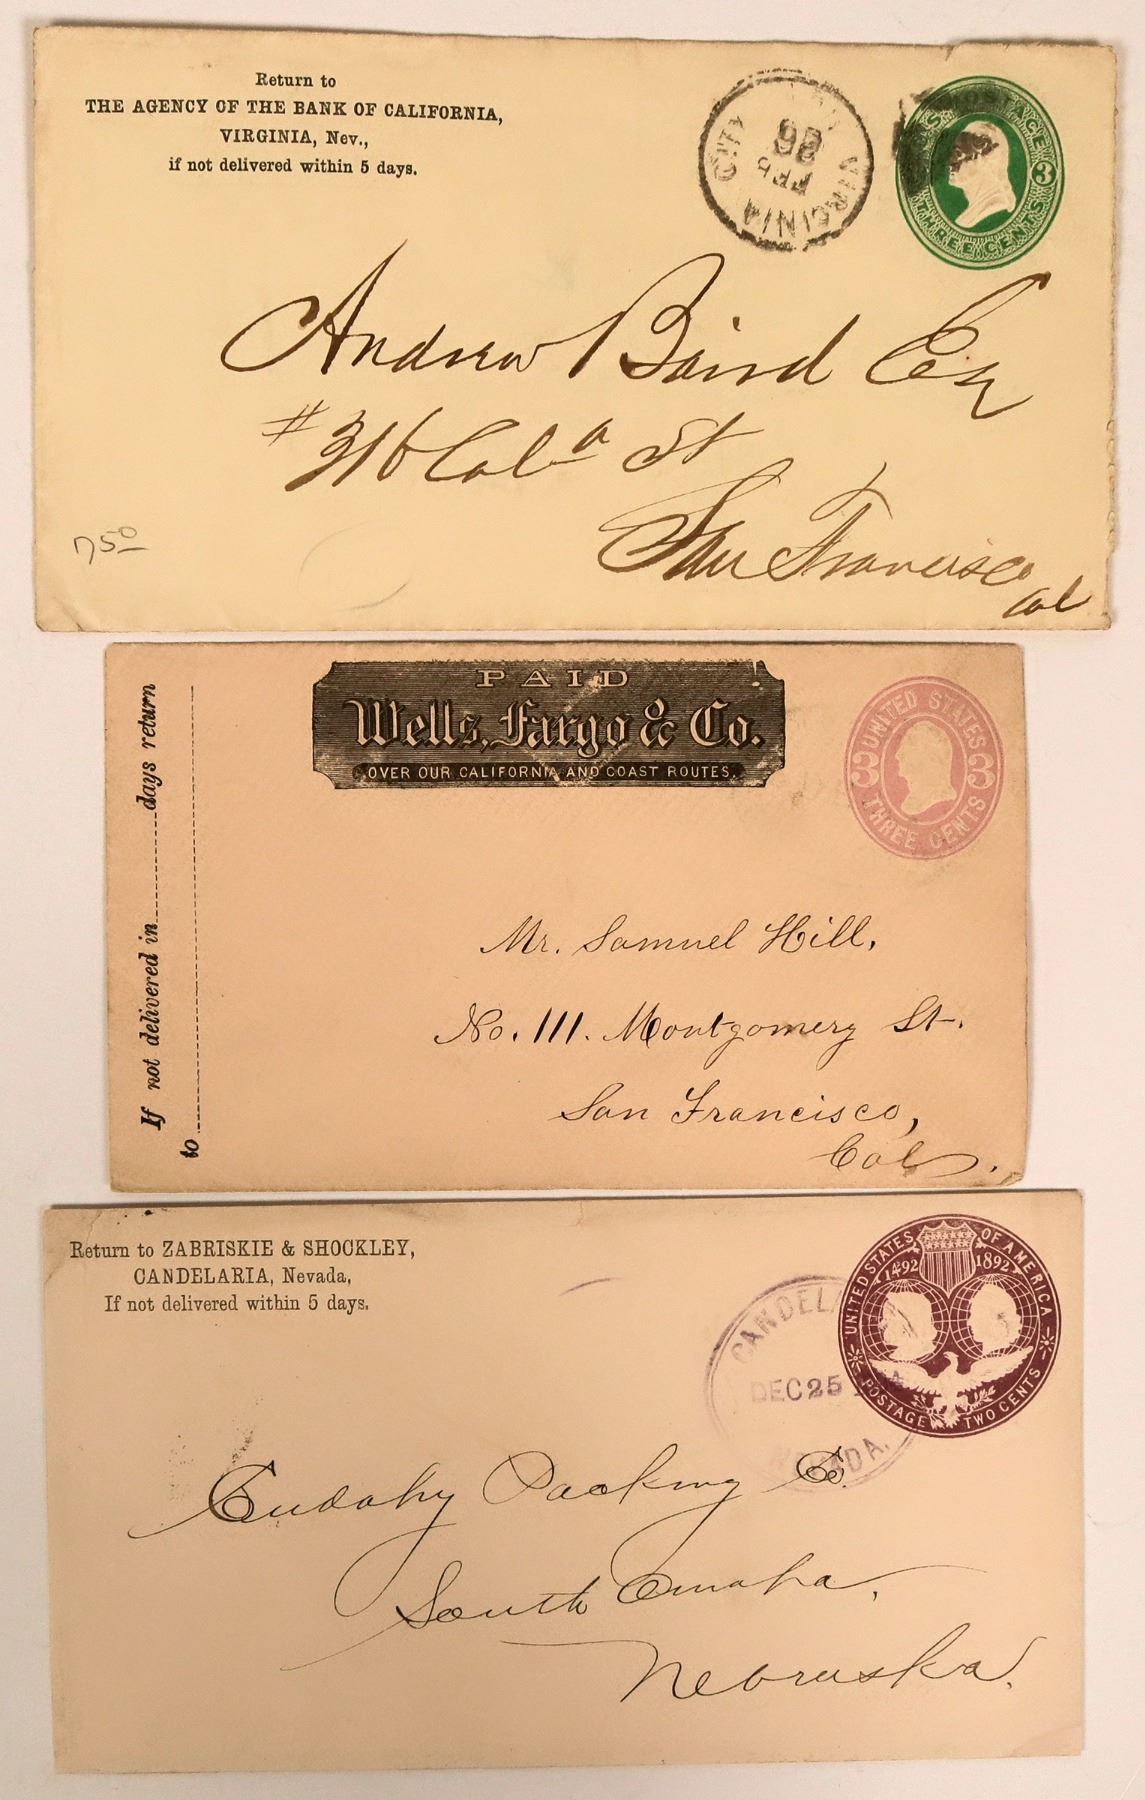 Return to
THE AGENCY OF THE BANK OF CALIFORNIA,
VIRGINIA, Nev.,
if not delivered within 5 days.
VIRGINIA CITY
FEB
26
U.S. POSTAGE
3
THREE CENTS
Andrew Baird Esq
# 316 Cala St
San Francisco
Cal
750
PAID
Wells, Fargo & Co.
OVER OUR CALIFORNIA AND COAST ROUTES.
UNITED STATES
3 3
THREE CENTS
If not delivered in days return
to
Mr. Samuel Hill,
No. 111. Montgomery St.
San Francisco,
Cal.
Return to ZABRISKIE & SHOCKLEY,
CANDELARIA, Nevada,
If not delivered within 5 days.
DEC 25
NEVADA.
UNITED STATES OF AMERICA
1492 1892
POSTAGE TWO CENTS
Cudahy Packing Co.
South Omaha,
Nebraska.